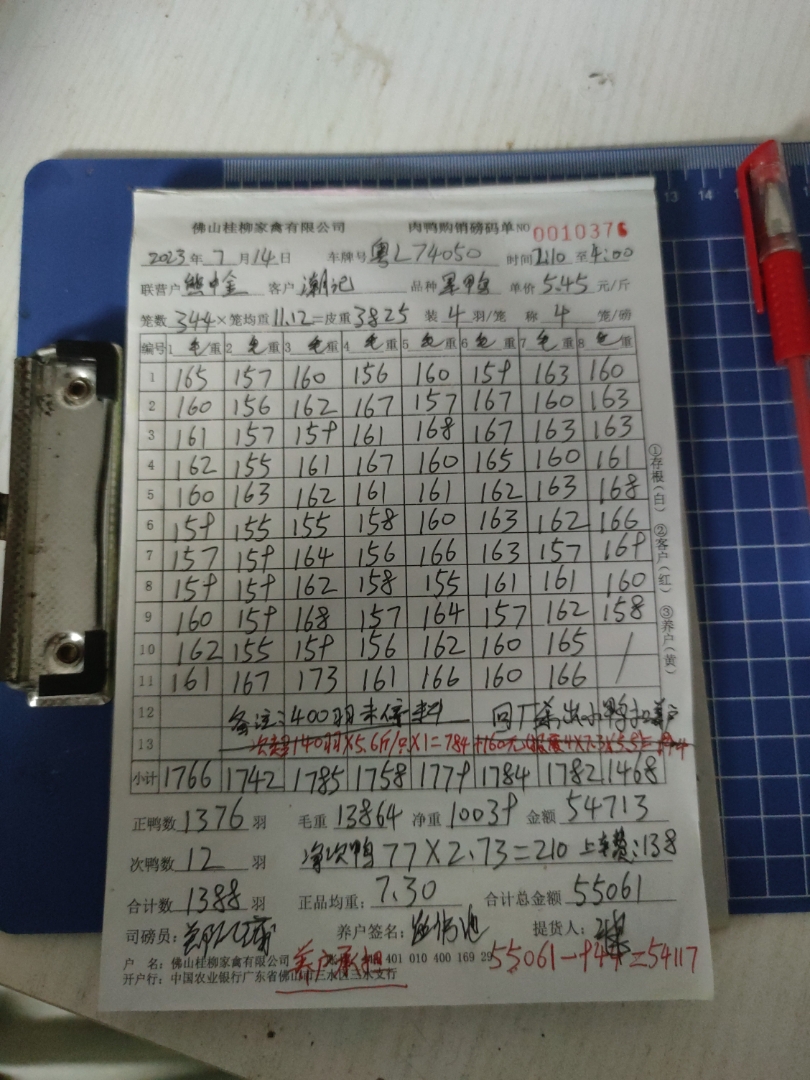 佛山桂柳家禽有限公司 肉鸭购销磅码单 NO 0010376
2023年7月14日 车牌号粤L74050 时间2:10至4:00
联营户熊中金 客户潮记 品种黑鸭 单价5.45元/斤
笼数344×笼均重11.12=皮重3825 装4羽/笼 称4笼/磅
编号 1毛重 2毛重 3毛重 4毛重 5毛重 6毛重 7毛重 8毛重
1 165 157 160 156 160 159 163 160
2 160 156 162 167 157 167 160 163
3 161 157 159 161 168 167 163 163
4 162 155 161 167 160 165 160 161
5 160 163 162 161 161 162 163 168
6 159 155 155 158 160 163 162 166
7 157 159 164 156 166 163 157 169
8 159 159 162 158 155 161 161 160
9 160 159 168 157 164 157 162 158
10 162 155 159 156 162 160 165 /
11 161 167 173 161 166 160 166
12 备注:400羽未停料 回厂
13 140羽×5.6斤/只×1=784+160元
小计 1766 1742 1785 1758 1779 1784 1782 1468
①存根(白) ②客户(红) ③养户(黄)
正鸭数1376羽 毛重13864 净重10039 金额54713
次鸭数12羽 净次鸭77×2.73=210 上车费:138
合计数1388羽 正品均重:7.30 合计总金额55061
司磅员: 养户签名: 提货人:
户 名:佛山桂柳家禽有限公司 401 010 400 169 29
开户行:中国农业银行广东省佛山市三水区三水支行
养户承担
55061-944=54117